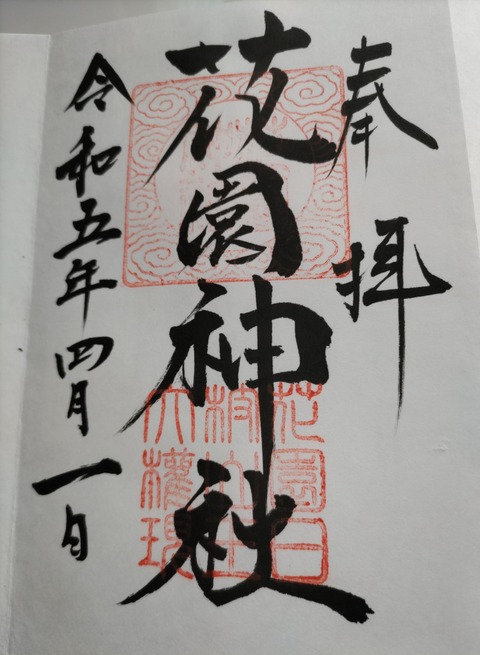 奉拝
花園神社
令和五年四月一日
花園日
枝
大權現